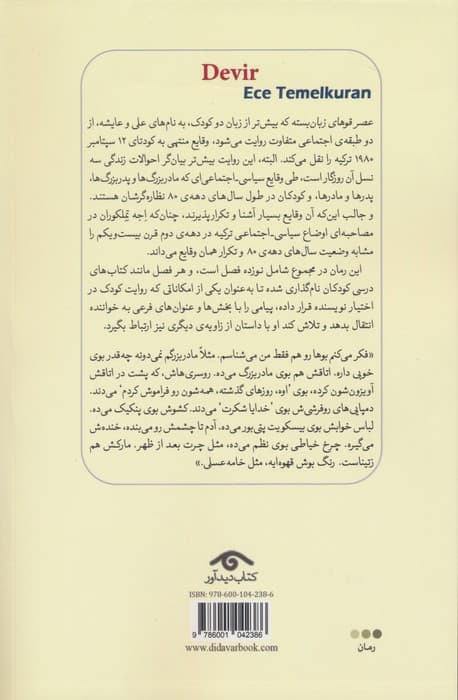 Devir
Ece Temelkuran
عصر قوهای زبان‌بسته که بیش‌تر از زبان دو کودک، به نام‌های علی و عایشه، از
دو طبقه‌ی اجتماعی متفاوت روایت می‌شود، وقایع منتهی به کودتای ۱۲ سپتامبر
۱۹۸۰ ترکیه را نقل می‌کند. البته، این روایت بیش‌تر بیان‌گر احوالات زندگی سه
نسل آن روزگار است، طی وقایع سیاسی-اجتماعی‌ای که مادربزرگ‌ها و پدربزرگ‌ها،
پدرها و مادرها، و کودکان در طول سال‌های دهه‌ی ۸۰ نظاره‌گرشان هستند.
و جالب این‌که آن وقایع بسیار آشنا و تکرارپذیرند، چنان‌که اِجه تِمِلکوران در
مصاحبه‌ای اوضاع سیاسی-اجتماعی ترکیه در دهه‌ی دوم قرن بیست‌ویکم را
مشابه وضعیت سال‌های دهه‌ی ۸۰ و تکرار همان وقایع می‌داند.
این رمان در مجموع شامل نوزده فصل است، و هر فصل مانند کتاب‌های
درسی کودکان نام‌گذاری شده تا به‌عنوان یکی از امکاناتی که روایت کودک در
اختیار نویسنده قرار داده، پیامی را با بخش‌ها و عنوان‌های فرعی به خواننده
انتقال بدهد و تلاش کند او با داستان از زاویه‌ی دیگری نیز ارتباط بگیرد.
«فکر می‌کنم بوها رو هم فقط من می‌شناسم. مثلاً مادربزرگم نمی‌دونه چه‌قدر بوی
خوبی داره. اتاقش هم بوی مادربزرگ می‌ده. روسری‌هاش، که پشت در اتاقش
آویزون‌شون کرده، بوی ʼاوه، روزهای گذشته، همه‌شون رو فراموش کردمʻ می‌دند.
دمپایی‌های روفرشی‌ش بوی ʼخدایا شکرتʻ می‌دند. کشوش بوی پنکیک می‌ده.
لباس خوابش بوی بیسکویت پتی‌بور می‌ده. آدم تا چشمش رو می‌بنده، خنده‌ش
می‌گیره. چرخ خیاطی بوی نظم می‌ده، مثل چرت بعد از ظهر. مارکش هم
زتیناست. رنگ بوش قهوه‌ایه، مثل خامه‌عسلی.»
کتاب دیدآور
ISBN: 978-600-104-238-6
9 786001 042386
www.didavarbook.com
رمان